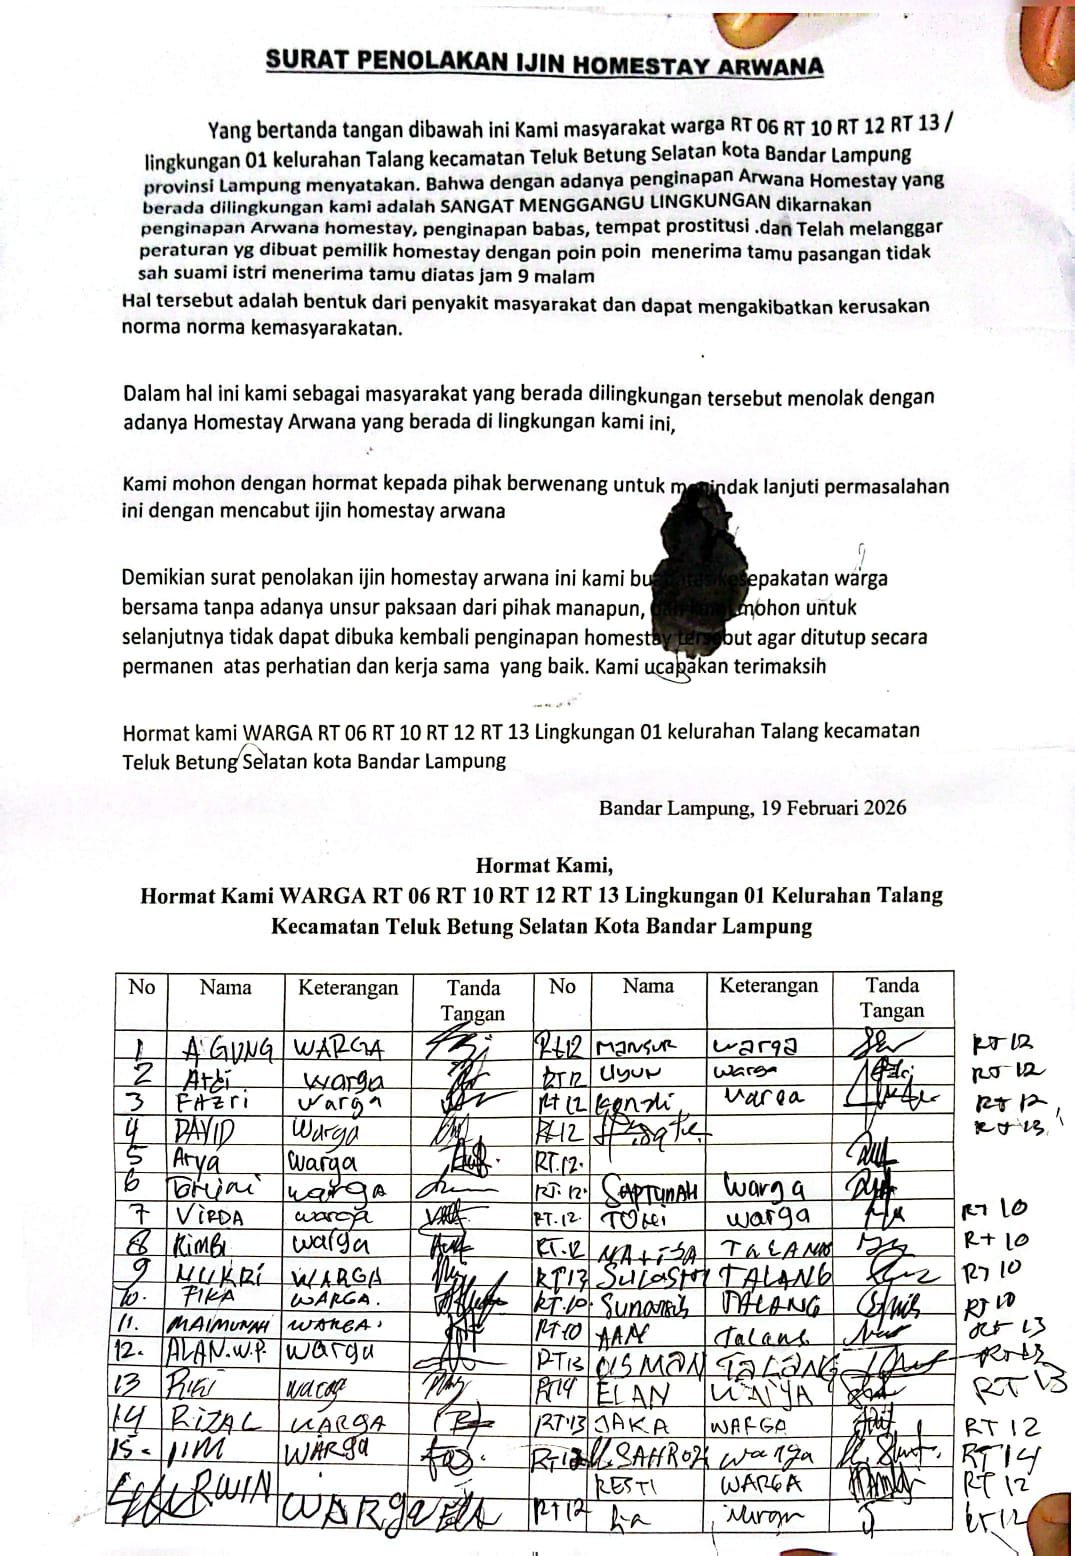 SURAT PENOLAKAN IJIN HOMESTAY ARWANA
Yang bertanda tangan dibawah ini Kami masyarakat warga RT 06 RT 10 RT 12 RT 13 /
lingkungan 01 kelurahan Talang kecamatan Teluk Betung Selatan kota Bandar Lampung
provinsi Lampung menyatakan. Bahwa dengan adanya penginapan Arwana Homestay yang
berada dilingkungan kami adalah SANGAT MENGGANGU LINGKUNGAN dikarnakan
penginapan Arwana homestay, penginapan babas, tempat prostitusi .dan Telah melanggar
peraturan yg dibuat pemilik homestay dengan poin poin menerima tamu pasangan tidak
sah suami istri menerima tamu diatas jam 9 malam
Hal tersebut adalah bentuk dari penyakit masyarakat dan dapat mengakibatkan kerusakan
norma norma kemasyarakatan.
Dalam hal ini kami sebagai masyarakat yang berada dilingkungan tersebut menolak dengan
adanya Homestay Arwana yang berada di lingkungan kami ini,
Kami mohon dengan hormat kepada pihak berwenang untuk menindak lanjuti permasalahan
ini dengan mencabut ijin homestay arwana
Demikian surat penolakan ijin homestay arwana ini kami kesepakatan warga
bersama tanpa adanya unsur paksaan dari pihak manapun, mohon untuk
selanjutnya tidak dapat dibuka kembali penginapan homestay tersebut agar ditutup secara
permanen atas perhatian dan kerja sama yang baik. Kami ucapakan terimaksih
Hormat kami WARGA RT 06 RT 10 RT 12 RT 13 Lingkungan 01 kelurahan Talang kecamatan
Teluk Betung Selatan kota Bandar Lampung
Bandar Lampung, 19 Februari 2026
Hormat Kami,
Hormat Kami WARGA RT 06 RT 10 RT 12 RT 13 Lingkungan 01 Kelurahan Talang
Kecamatan Teluk Betung Selatan Kota Bandar Lampung
No Nama Keterangan Tanda Tangan No Nama Keterangan Tanda Tangan
1 AGUNG WARGA Rt12 Mansur warga RT 12
2 warga RT 12 Uyun warga RT 12
3 FAZri warga Rt 12 warga RT 12
4 DAVID warga Rt 12 RT 13
5 Arya warga RT.12.
6 warga RT. 12. SAPTUNAH warga
7 VIRDA warga RT. 12 warga RT 10
8 KIMBI warga RT. 12 TALANG Rt 10
9 MUKRi WARGA RT13 TALANG RT 10
10. FIKA WARGA. RT.10. TALANG RT 10
11. MAIMUNAH WARGA. RT10 AAN Talang RT 13
12. ALAN.W.P. warga RT13 OISMAN TALANG RT 13
13 Riki warga RT14 ELAN RT 13
14 RIZAL WARGA RT13 JAKA WARGA RT 12
15. IIM WARga RT12 SAHRONI warga RT14
RESTI WARGA RT 12
ERWIN WARga RT12 RT 12